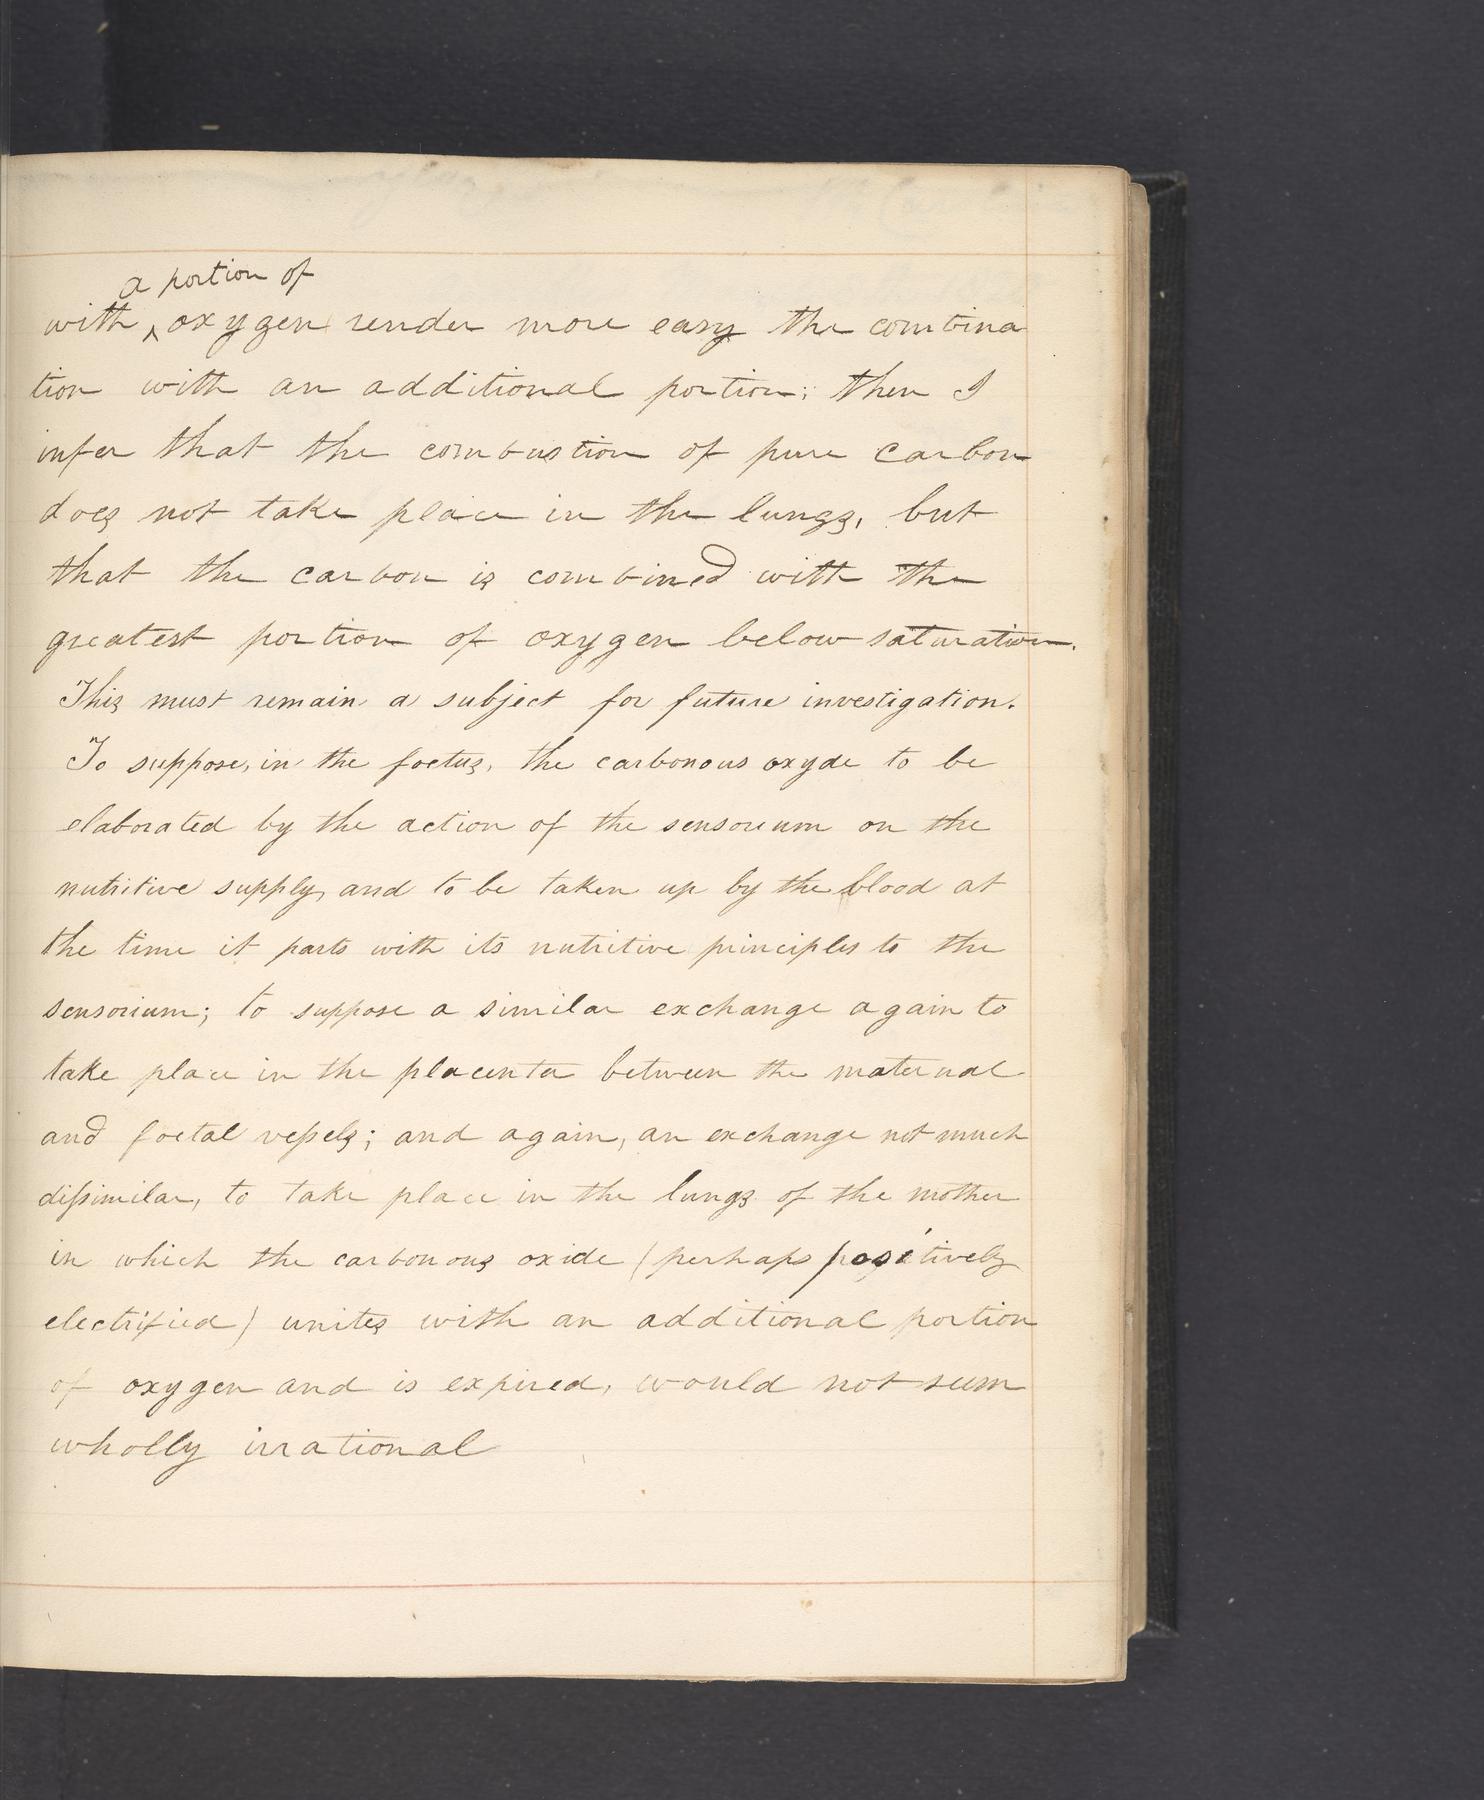 a portion of
with ^ oxygen render more easy the combina
tion with an additional portion; then I
infer that the combustion of pure carbon
does not take place in the lungs, but
that the carbon is combined with the
greatest portion of oxygen below saturation.
This must remain a subject for future investigation.
To suppose, in the foetus, the carbonous oxyde to be
elaborated by the action of the sensorium on the
nutritive supply, and to be taken up by the blood at
the time it parts with its nutritive principles to the
sensorium; to suppose a similar exchange again to
take place in the placenta between the maternal
and foetal veſsels; and again, an exchange not much
diſsimilar, to take place in the lungs of the mother
in which the carbonous oxide (perhaps positively
electrified) unites with an additional portion
of oxygen and is expired, would not seem
wholly irrational